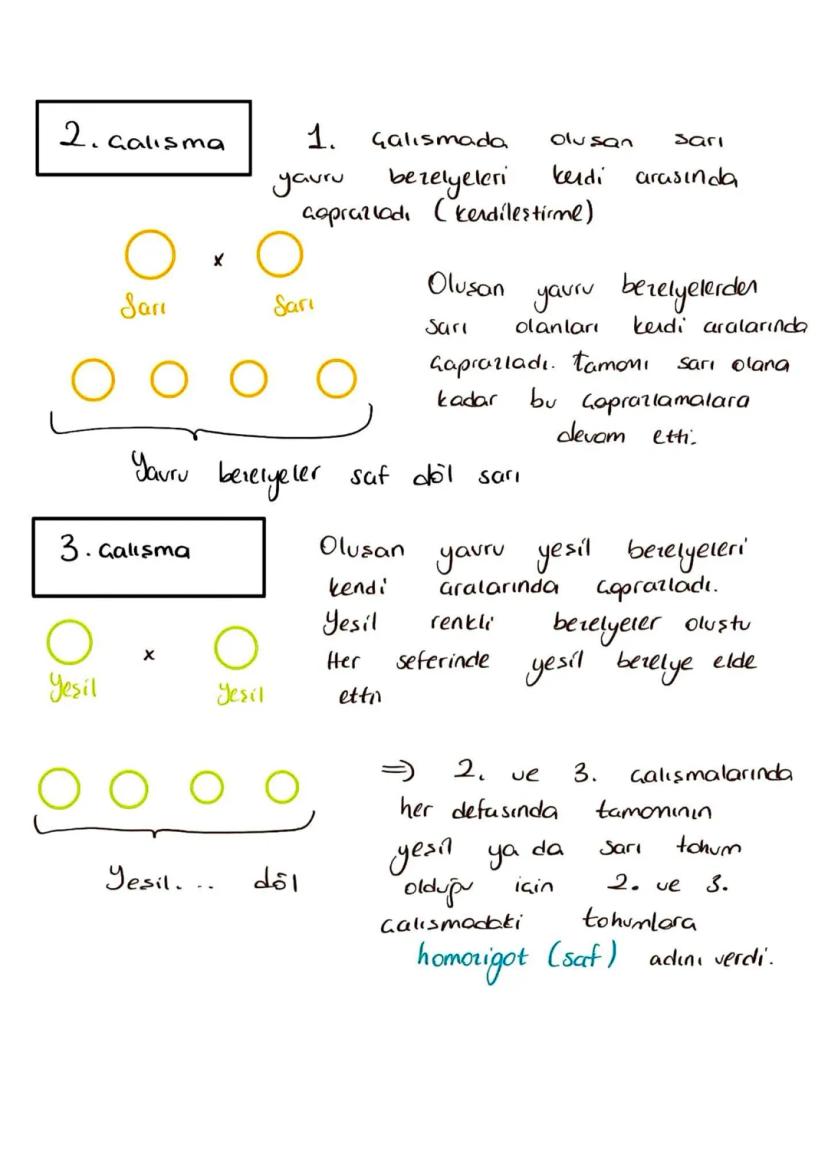 2. Çalışma
1. Çalışmada oluşan sarı
yavru bezelyeleri kendi arasında
çaprazladı (kendileştirme)
x
Sarı Sarı
Oluşan yavru bezelyelerden
sarı olanları kendi aralarında
çaprazladı. tamamı sarı olana
kadar bu çaprazlamalara
devam etti.
Yavru bezelyeler saf döl sarı
3. Çalışma
Oluşan yavru yeşil bezelyeleri
kendi aralarında çaprazladı.
Yeşil renkli bezelyeler oluştu
Her seferinde yeşil bezelye elde
etti
x
Yeşil Yeşil
Yeşil... döl
⇒ 2. ve 3. çalışmalarında
her defasında tamamının
yeşil ya da sarı tohum
olduğu için 2. ve 3.
çalışmadaki tohumlara
homozigot (saf) adını verdi.